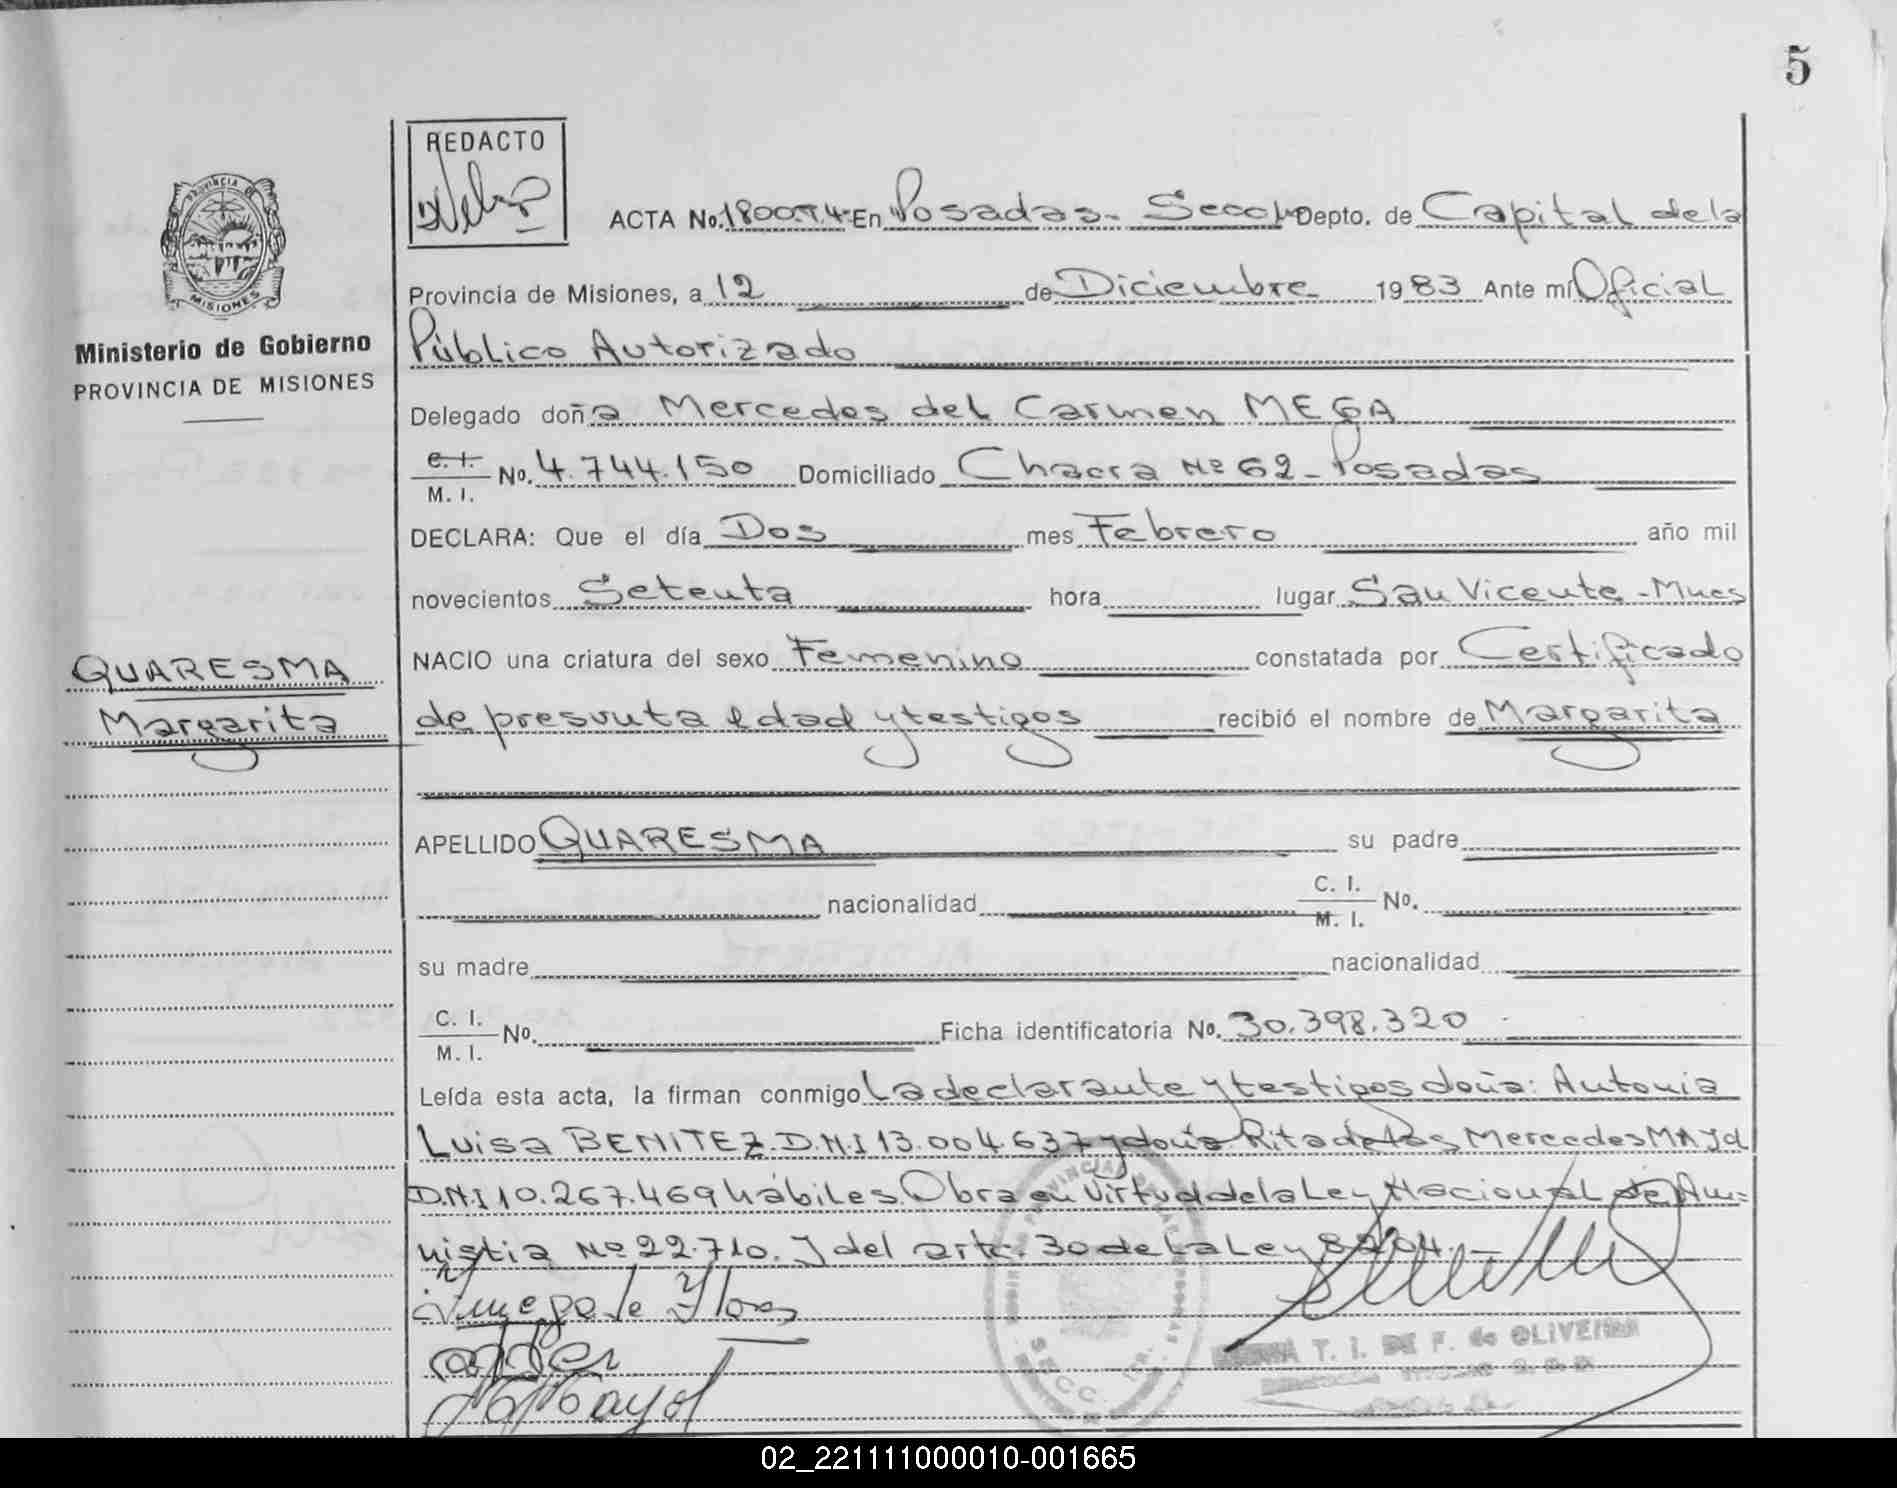 5
REDACTO
PROVINCIA DE
MISIONES
Ministerio de Gobierno
PROVINCIA DE MISIONES
ACTA No. En Posadas - Secc 1ª Depto. de Capital de la
Provincia de Misiones, a 12 de Diciembre 1983 Ante mí Oficial
Público Autorizado
Delegado doña Mercedes del Carmen MEGA
C. I. / M. I. No. 4.744.150 Domiciliado Chacra Nº 62 - Posadas
DECLARA: Que el día Dos mes Febrero año mil
novecientos Setenta hora lugar San Vicente - Mnes
NACIO una criatura del sexo Femenino constatada por Certificado
QUARESMA
Margarita
de presunta edad y testigos recibió el nombre de Margarita
APELLIDO QUARESMA su padre
nacionalidad C. I. / M. I. No.
su madre nacionalidad
C. I. / M. I. No. Ficha identificatoria No. 30.398.320
Leída esta acta, la firman conmigo La declarante y testigos doña: Antonia
Luisa BENITEZ. D.N.I 13.004.637 y doña Rita de las Mercedes
D.N.I 10.267.469 hábiles. Obra en Virtud de la Ley Nacional de Am-
nistia Nº 22.710. y del artc. 30 de La Ley 8204.-
de Flores
T. I. DE F. de OLIVEIRA
SECC.
02_221111000010-001665